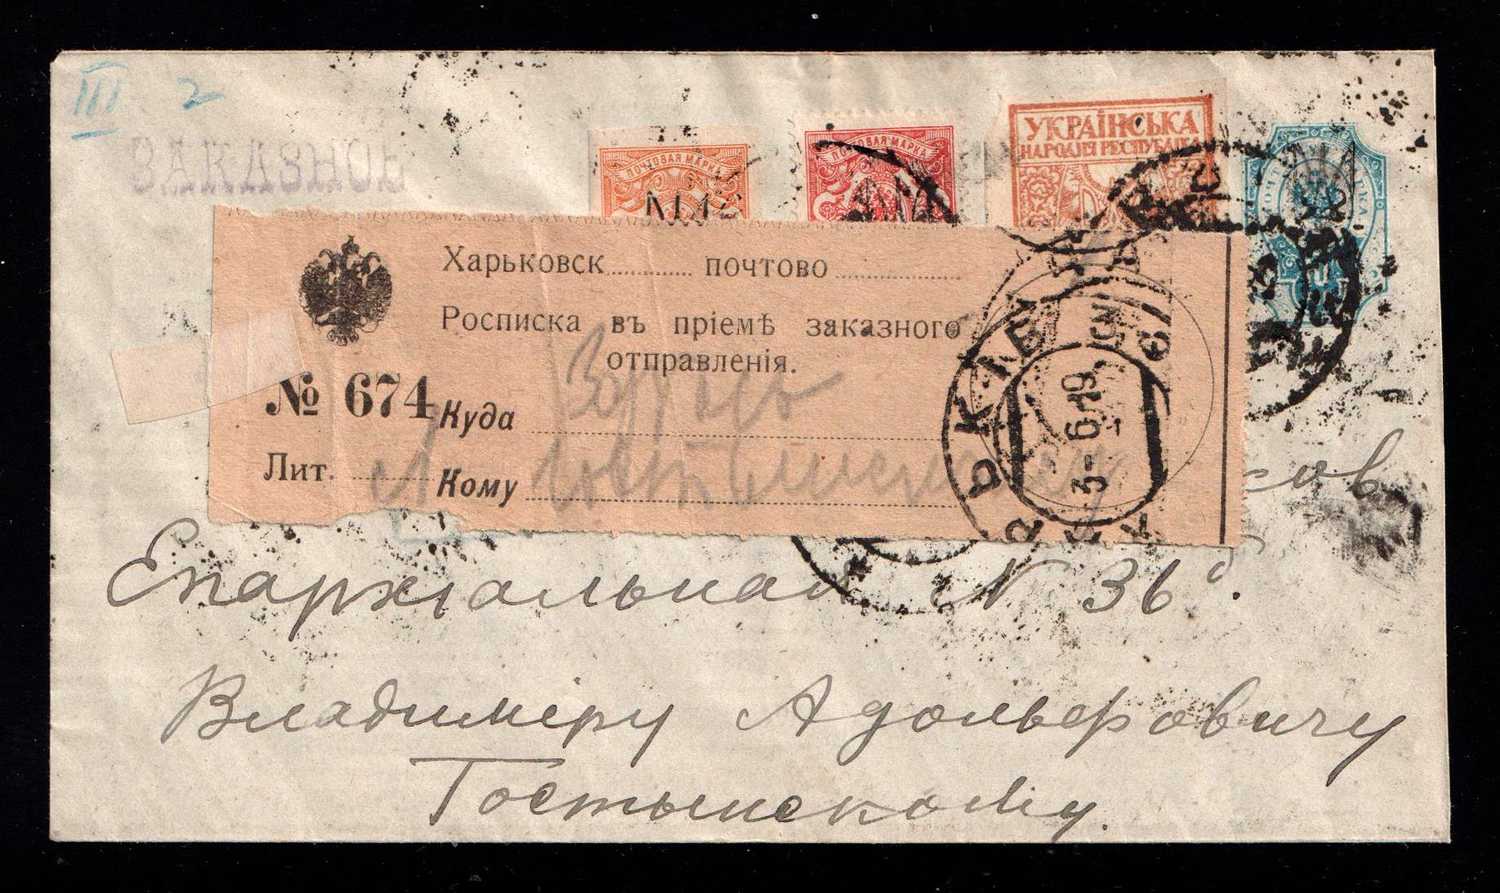 III 2
ЗАКАЗНОЕ
ПОЧТОВАЯ МАРКА
ПОЧТОВАЯ МАРКА
УКРАЇНСЬКА
НАРОДНЯ РЕСПУБЛІКА
Харьковск почтово
Росписка въ пріемѣ заказного
отправленія.
№ 674
Куда
Лит.
Кому
ХАРЬКОВ
3-6.19
Епархіальная N 36
Владиміру Адольфовичу
Гостынскому.